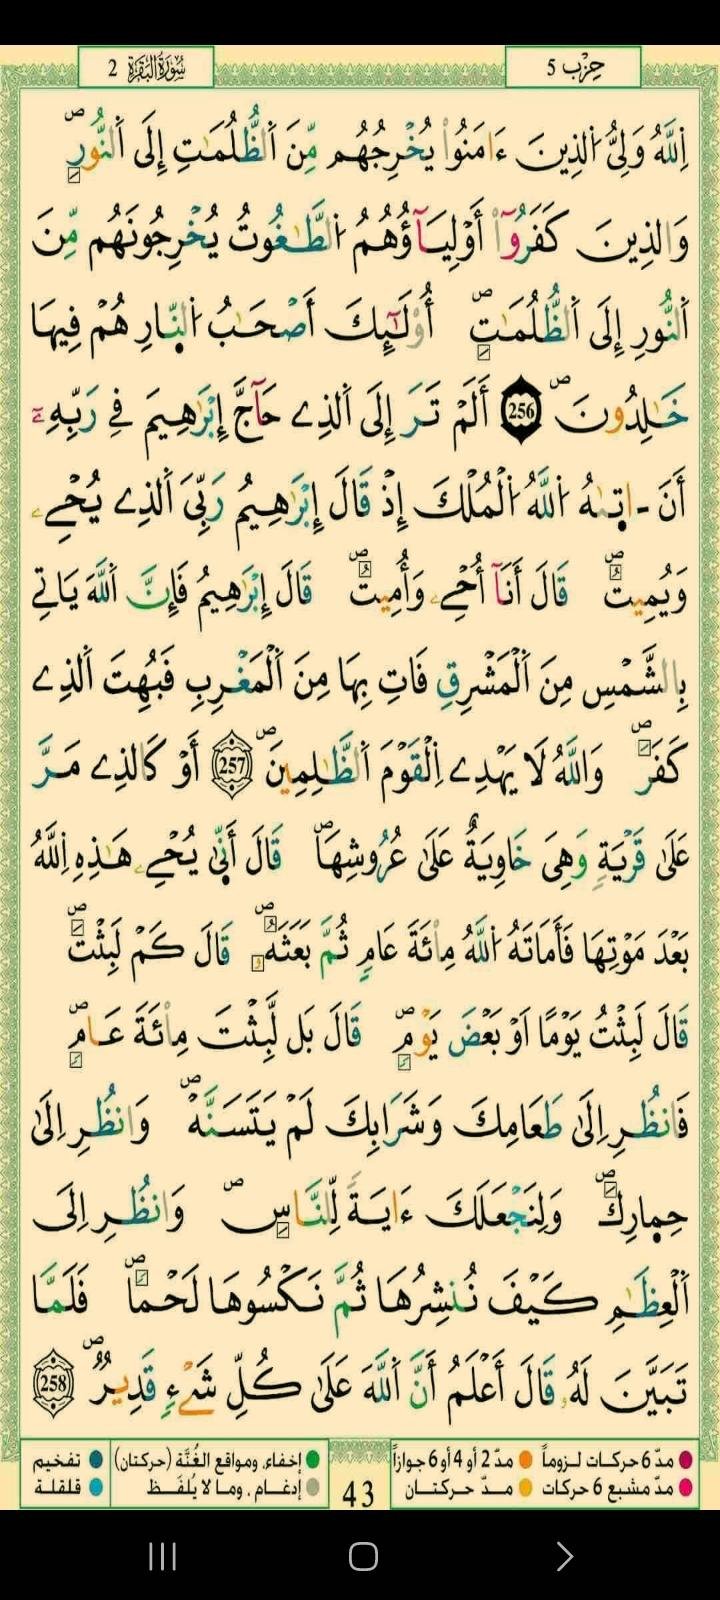 سُورَةُ الْبَقَرَةِ 2
حِزْب 5
اِ۬للَّهُ وَلِيُّ اُ۬لذِينَ ءَامَنُواْ يُخْرِجُهُم مِّنَ اَ۬لظُّلُمَٰتِ إِلَى اَ۬لنُّورِۖ
وَالذِينَ كَفَرُوٓاْ أَوْلِيَآؤُهُمُ اُ۬لطَّٰغُوتُ يُخْرِجُونَهُم مِّنَ
اَ۬لنُّورِ إِلَى اَ۬لظُّلُمَٰتِۖ أُوْلَٰٓئِكَ أَصْحَٰبُ اُ۬لنّ۪ارِ هُمْ فِيهَا
خَٰلِدُونَۖ 256 أَلَمْ تَرَ إِلَى اَ۬لذِے حَآجَّ إِبْرَٰهِيمَ فِے رَبِّهِۦٓ
أَنَ اٰت۪يٰهُ اُ۬للَّهُ اُ۬لْمُلْكَ إِذْ قَالَ إِبْرَٰهِيمُ رَبِّيَ اَ۬لذِے يُحْيِۦ
وَيُمِيتُۖ قَالَ أَنَآ أُحْيِۦ وَأُمِيتُۖ قَالَ إِبْرَٰهِيمُ فَإِنَّ اَ۬للَّهَ يَاتِے
بِالشَّمْسِ مِنَ اَ۬لْمَشْرِقِ فَاتِ بِهَا مِنَ اَ۬لْمَغْرِبِ فَبُهِتَ اَ۬لذِے
كَفَرَۖ وَاللَّهُ لَا يَهْدِے اِ۬لْقَوْمَ اَ۬لظَّٰلِمِينَۖ 257 أَوْ كَالذِے مَرَّ
عَلَىٰ قَرْيَةٍ وَهِيَ خَاوِيَةٌ عَلَىٰ عُرُوشِهَاۖ قَالَ أَنّ۪يٰ يُحْيِۦ هَٰذِهِ اِ۬للَّهُ
بَعْدَ مَوْتِهَا فَأَمَاتَهُ اُ۬للَّهُ مِاْئَةَ عَامٍ ثُمَّ بَعَثَهُۥۖ قَالَ كَمْ لَبِثْتَۖ
قَالَ لَبِثْتُ يَوْمًا اَوْ بَعْضَ يَوْمٍۖ قَالَ بَل لَّبِثْتَ مِاْئَةَ عَامٍۖ
فَانظُرِ اِلَىٰ طَعَامِكَ وَشَرَابِكَ لَمْ يَتَسَنَّهْۖ وَانظُرِ اِلَىٰ
حِم۪ارِكَۖ وَلِنَجْعَلَكَ ءَايَةً لِّلنَّاسِۖ وَانظُرِ اِلَى
اَ۬لْعِظَٰمِ كَيْفَ نُنشِرُهَا ثُمَّ نَكْسُوهَا لَحْمًاۖ فَلَمَّا
تَبَيَّنَ لَهُۥ قَالَ أَعْلَمُ أَنَّ اَ۬للَّهَ عَلَىٰ كُلِّ شَےْءٍ قَدِيرٌۖ 258
مدّ 6 حركات لزوماً مدّ 2 أو 4 أو 6 جوازاً
مدّ مشبع 6 حركات مدّ حركتان
43
إخفاء، ومواقع الغُنَّة (حركتان) تفخيم
إدغام، وما لا يُلفَظ قلقلة